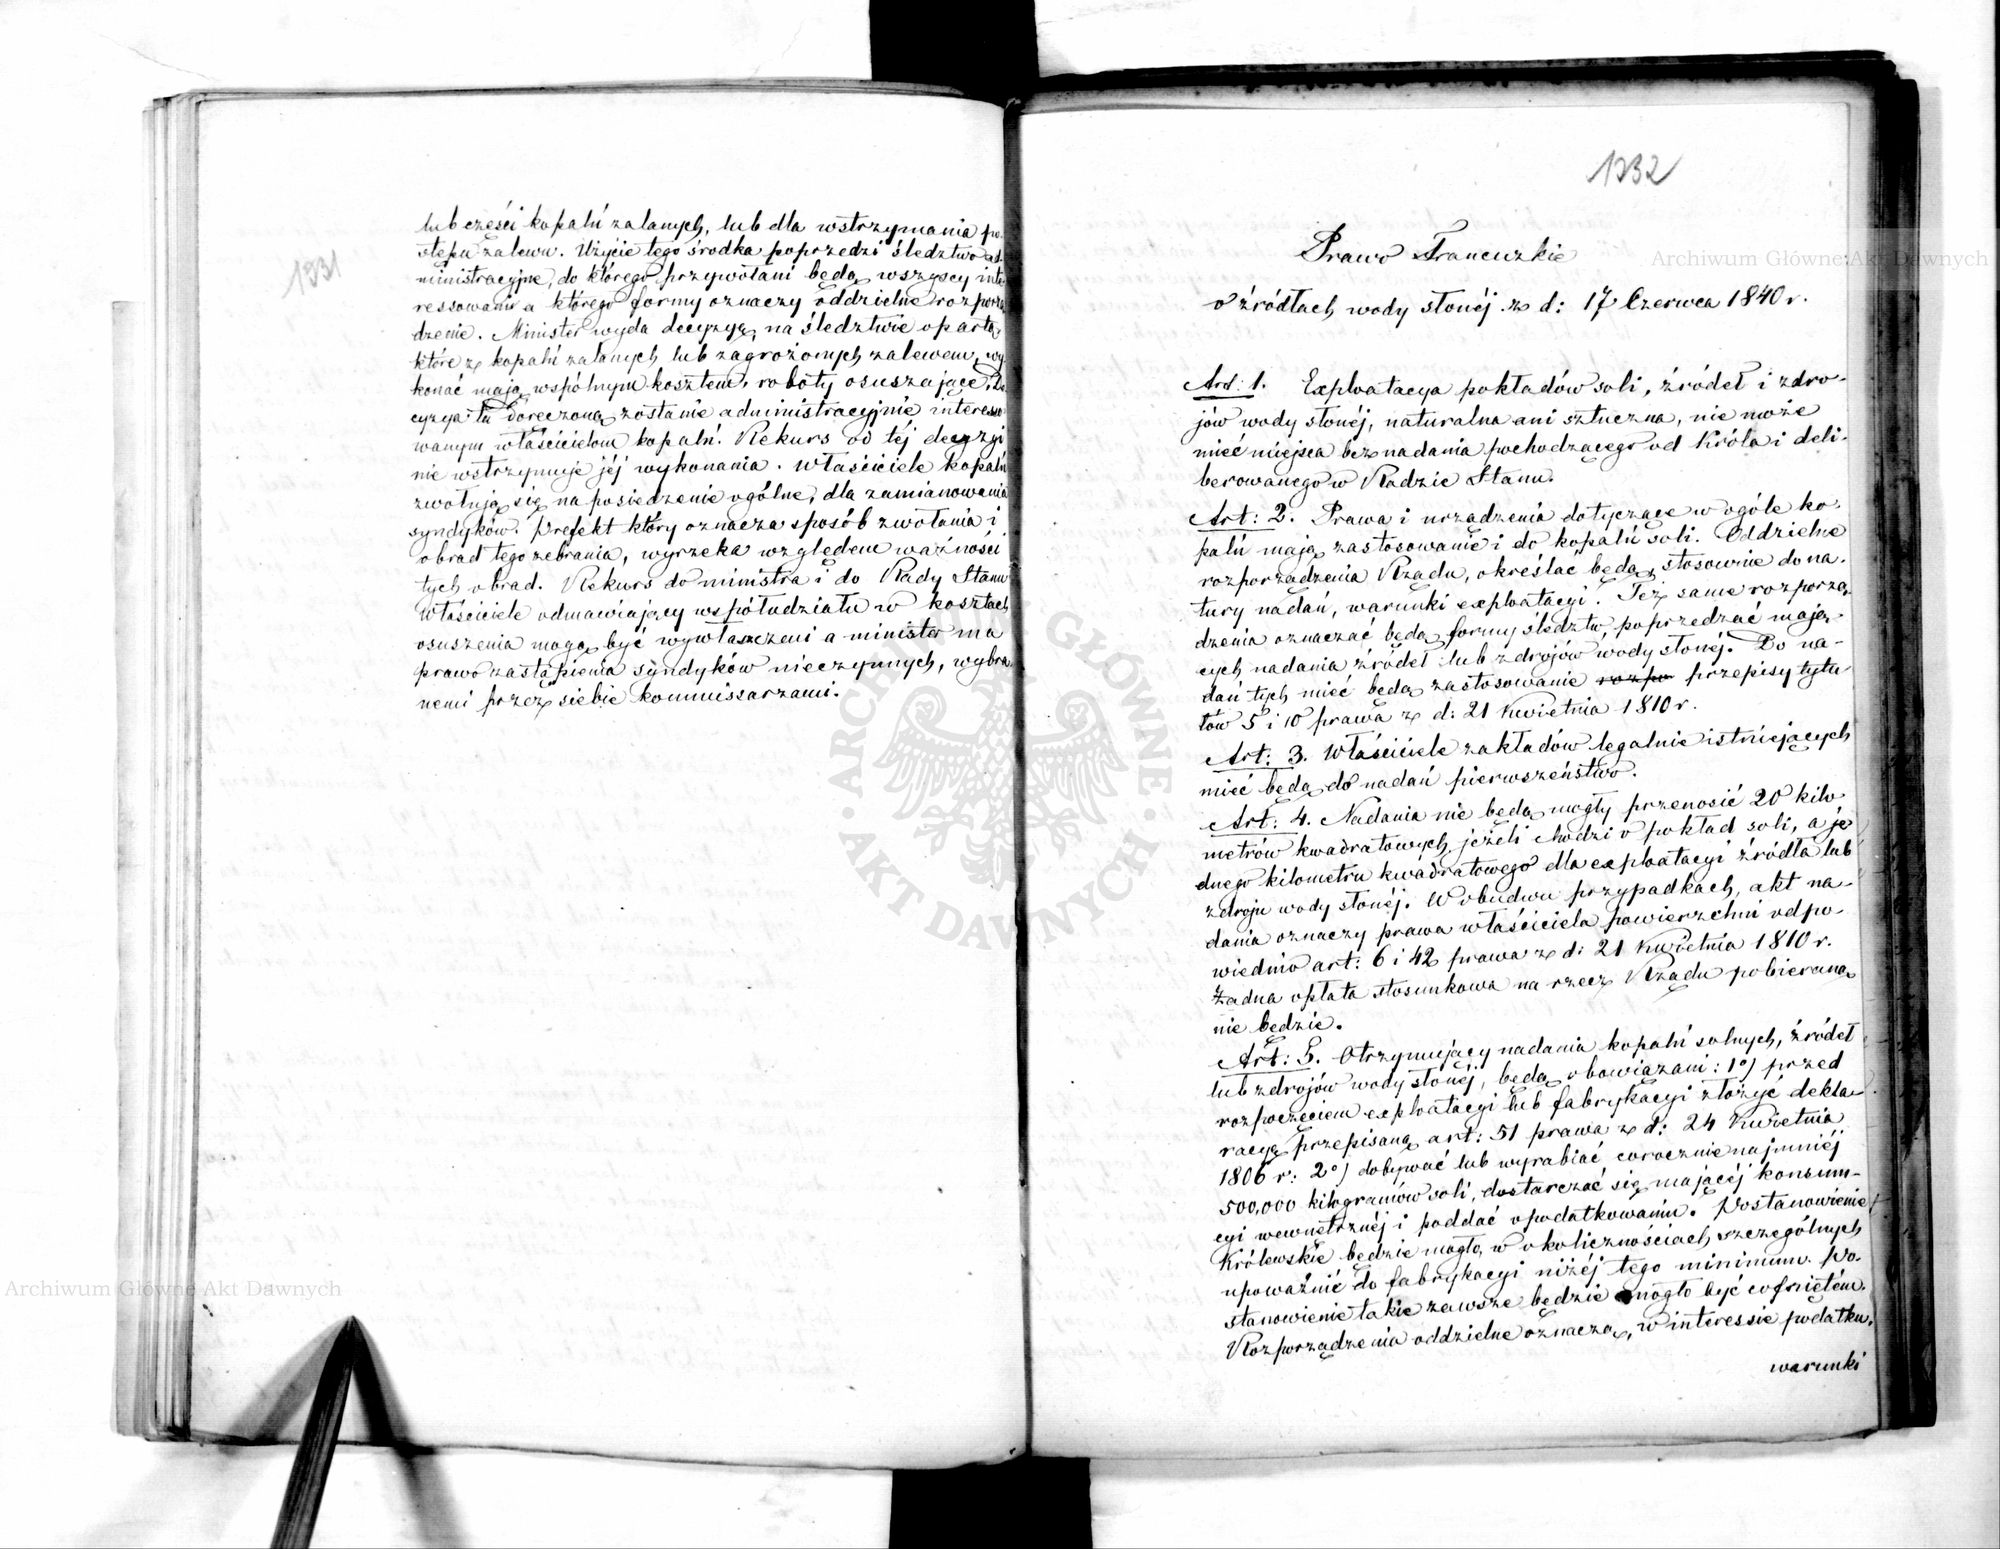 1331
lub części kopalń zalanych, lub dla wstrzymania po-
stępu zalewu. Użycie tego środka poprzedzi śledztwo ad-
ministracyjne, do którego przywołani będą wszyscy inte-
ressowani a którego formy oznaczy oddzielne rozporzą-
dzenie. Minister wyda decyzyą, na śledztwie opartą,
które z kopalń zalanych lub zagrożonych zalewem, wy-
konać mają wspólnym kosztem, roboty osuszające. De-
cyzya ta doręczoną zostanie administracyjnie interesso-
wanym właścicielom kopalń. Rekurs od téj decyzyi
nie wstrzymuje jéj wykonania. Właściciele kopalń
zwołują się na posiedzenie ogólne, dla zamianowania
syndyków. Prefekt który oznacza sposób zwołania i
obrad tego zebrania, wyrzeka względem ważności
tych obrad. Rekurs do ministra i do Rady Stanu
Właściciele odmawiający współudziału w kosztach
osuszenia mogą być wywłaszczeni a minister ma
prawo zastąpienia syndyków nieczynnych, wybra-
nemi przez siebie kommissarzami.
1332
Prawo Francuzkie
o źródłach wody słonéj z d: 17 Czerwca 1840 r.
Art: 1. Exploatacya pokładów soli, źródeł i zdro-
jów wody słonéj, naturalna ani sztuczna, nie może
mieć miejsca bez nadania pochodzącego od Króla i deli-
berowanego w Radzie Stanu.
Art: 2. Prawa i urządzenia dotyczące w ogóle ko-
palń mają zastosowanie i do kopalń soli. Oddzielne
rozporządzenia Rządu, określać będą, stosownie do na-
tury nadań, warunki exploatacyi. Też same rozporzą-
dzenia oznaczać będą formy śledztw, poprzedzać mają-
cych nadania źródeł lub zdrojów wody słonéj. Do na-
dań tych mieć będą zastosowanie rozpo przepisy tytu-
łów 5 i 10 prawa z d: 21 Kwietnia 1810 r.
Art: 3. Właściciele zakładów legalnie istniejących
mieć będą do nadań pierwszeństwo.
Art: 4. Nadania nie będą mogły przenosić 20 kilo-
metrów kwadratowych, jeżeli chodzi o pokład soli, a je-
dnego kilometru kwadratowego dla exploatacyi źródła lub
zdroju wody słonéj. W obudwu przypadkach, akt na-
dania oznaczy prawa właściciela powierzchni odpo-
wiednio art: 6 i 42 prawa z d: 21 Kwietnia 1810 r.
Żadna opłata stosunkowa na rzecz Rządu pobieraną
nie będzie.
Art: 5. Otrzymujący nadania kopalń solnych, źródeł
lub zdrojów wody słonéj, będą obowiązani: 1o) przed
rozpoczęciem exploatacyi lub fabrykacyi złożyć dekla-
racyą przepisaną art: 51 prawa z d: 24 Kwietnia
1806 r: 2o) dobywać lub wyrabiać corocznie najmniéj
500,000 kilogramów soli, dostarczać się mającéj konsum-
cyi wewnętrznéj i poddać opodatkowaniu. Postanowienie
Królewskie będzie mogło, w okolicznościach szczególnych
upoważnić do fabrykacyi niżéj tego minimum. Po-
stanowienie takie zawsze będzie mogło być cofniętém.
Rozporządzenia oddzielne oznaczą, w interessie podatku,
warunki
ARCHIWUM GŁÓWNE · AKT DAWNYCH ·
Archiwum Główne Akt Dawnych
Archiwum Główne Akt Dawnych